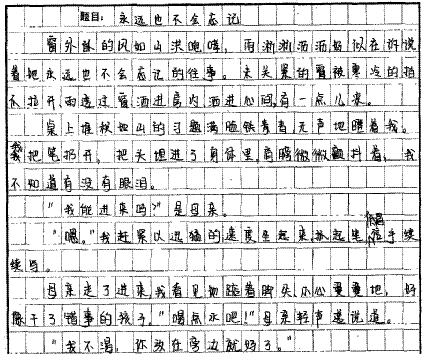 题目：永远也不会忘记
窗外的风如山洪咆哮，雨淅淅洒洒好似在诉说
着她永远也不会忘记的往事。床头的窗被寒冷的拍
打开，雨透过窗洒进房内，洒进心间，有一点儿寒。
桌上堆积如山的习题满脸铁青着无声地瞪着我。
我把笔扔开，把头埋进了身体里，肩膀微微颤抖着，我
不知道有没有眼泪。
“我能进来吗？”是母亲。
“嗯。”我赶紧以迅猛的速度坐起来拿起笔信手续
续写。
母亲走了进来，我看见她踮着脚尖小心翼翼地，好
像干了错事的孩子。“喝点水吧！”母亲轻声道说道。
“我不渴，你放在旁边就好了。”